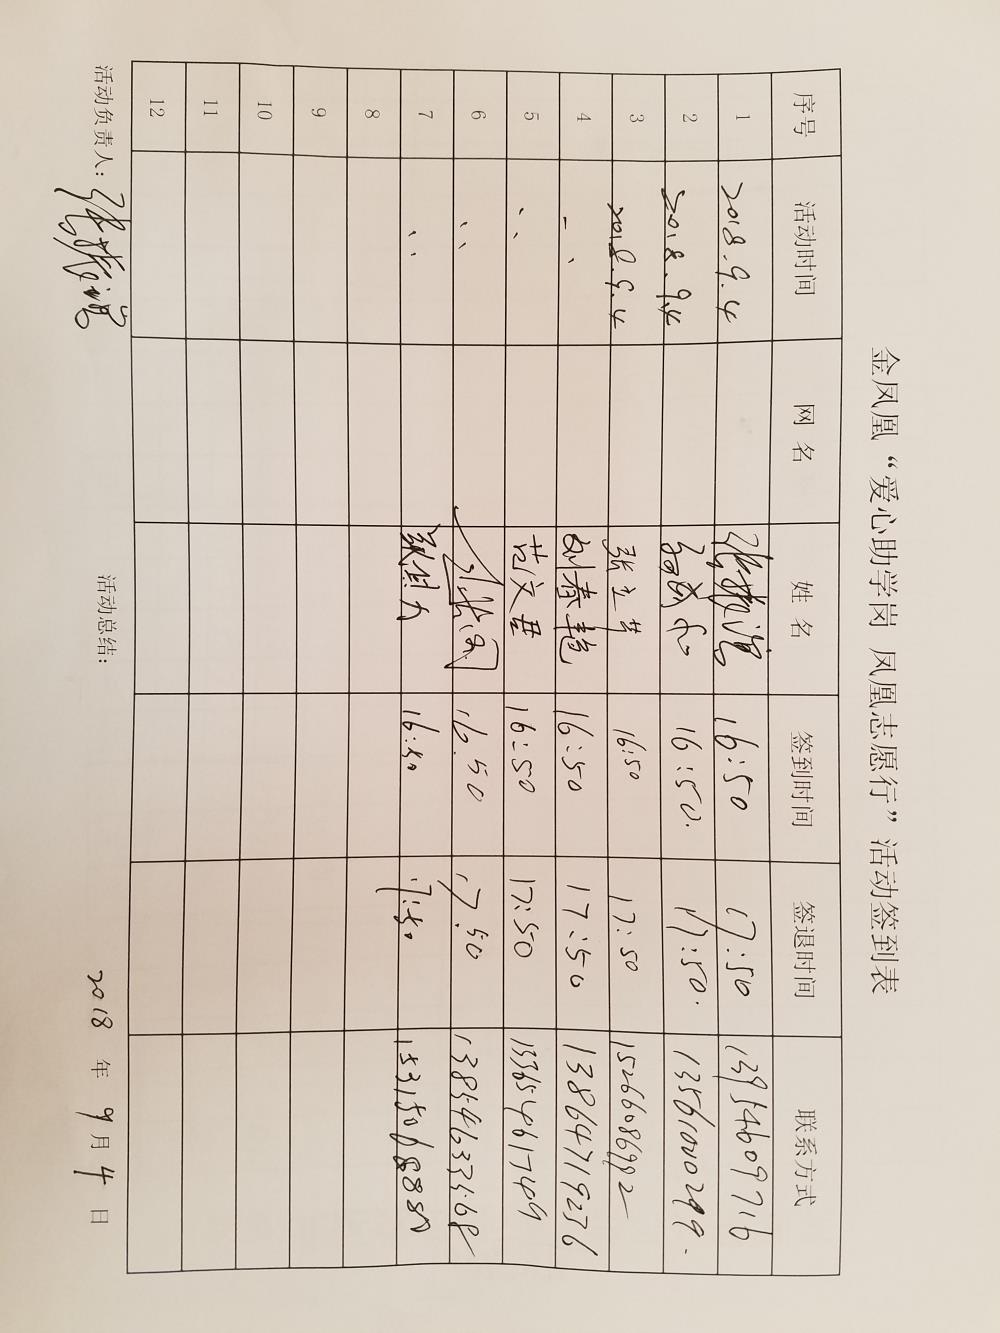 金凤凰“爱心助学岗 凤凰志愿行”活动签到表
序号 活动时间 网 名 姓 名 签到时间 签退时间 联系方式
1 2018.9.4 16:50 17:50 13954609716
2 2018.9.4 16:50. 17:50. 13561000299.
3 2018.9.4 16:50 17:50 15266086992
4 刘春艳 16:50 17:50 13864719236
5 范文君 16:50 17:50 13365461749
6 16.50 17.50 13854633468
7 16:50 17:50
8
9
10
11
12
活动负责人: 活动总结: 2018 年 9 月 4 日